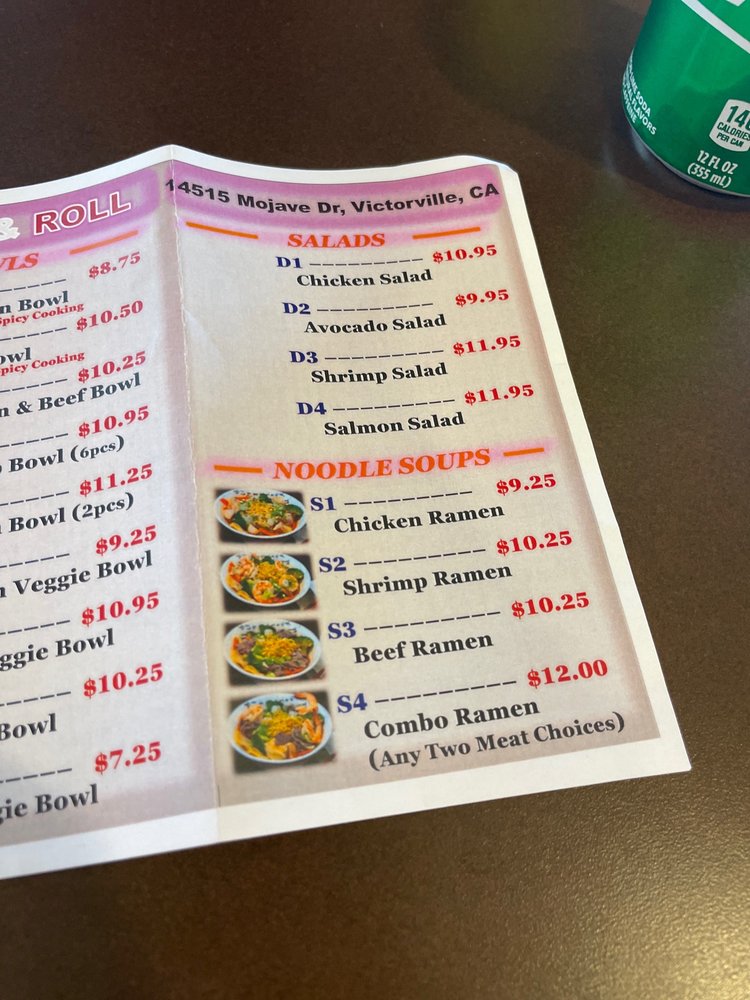 & ROLL
$8.75
n Bowl
Spicy Cooking
$10.50
owl
picy Cooking
$10.25
n & Beef Bowl
$10.95
Bowl (6pcs)
$11.25
Bowl (2pcs)
$9.25
Veggie Bowl
$10.95
ggie Bowl
$10.25
Bowl
$7.25
gie Bowl
14515 Mojave Dr, Victorville, CA
SALADS
D1 ____________ $10.95
Chicken Salad
D2 ____________ $9.95
Avocado Salad
D3 ____________ $11.95
Shrimp Salad
D4 ____________ $11.95
Salmon Salad
NOODLE SOUPS
S1 ____________ $9.25
Chicken Ramen
S2 ____________ $10.25
Shrimp Ramen
S3 ____________ $10.25
Beef Ramen
S4 ____________ $12.00
Combo Ramen
(Any Two Meat Choices)
SODA
FLAVORS
140
CALORIES
PER CAN
12 FL OZ
(355 mL)